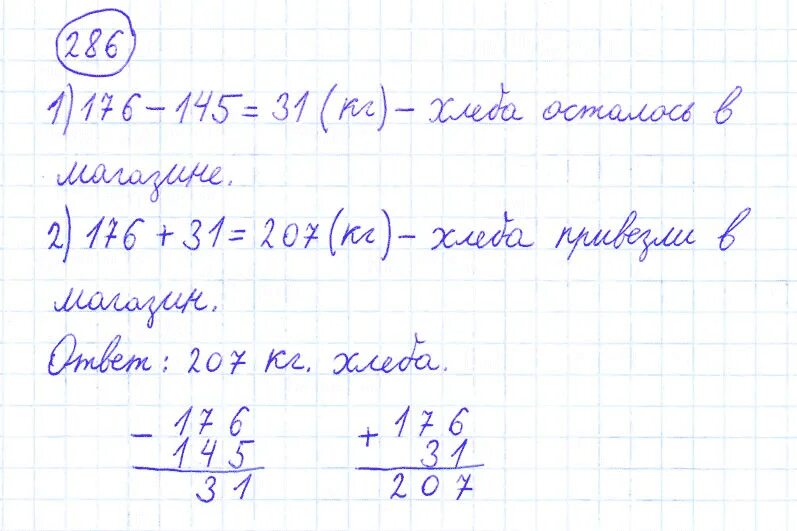 286
1) 176 - 145 = 31 (кг) - хлеба осталось в
магазине.
2) 176 + 31 = 207 (кг) - хлеба привезли в
магазин.
Ответ: 207 кг. хлеба.
- 176 + 176
145 31
31 207